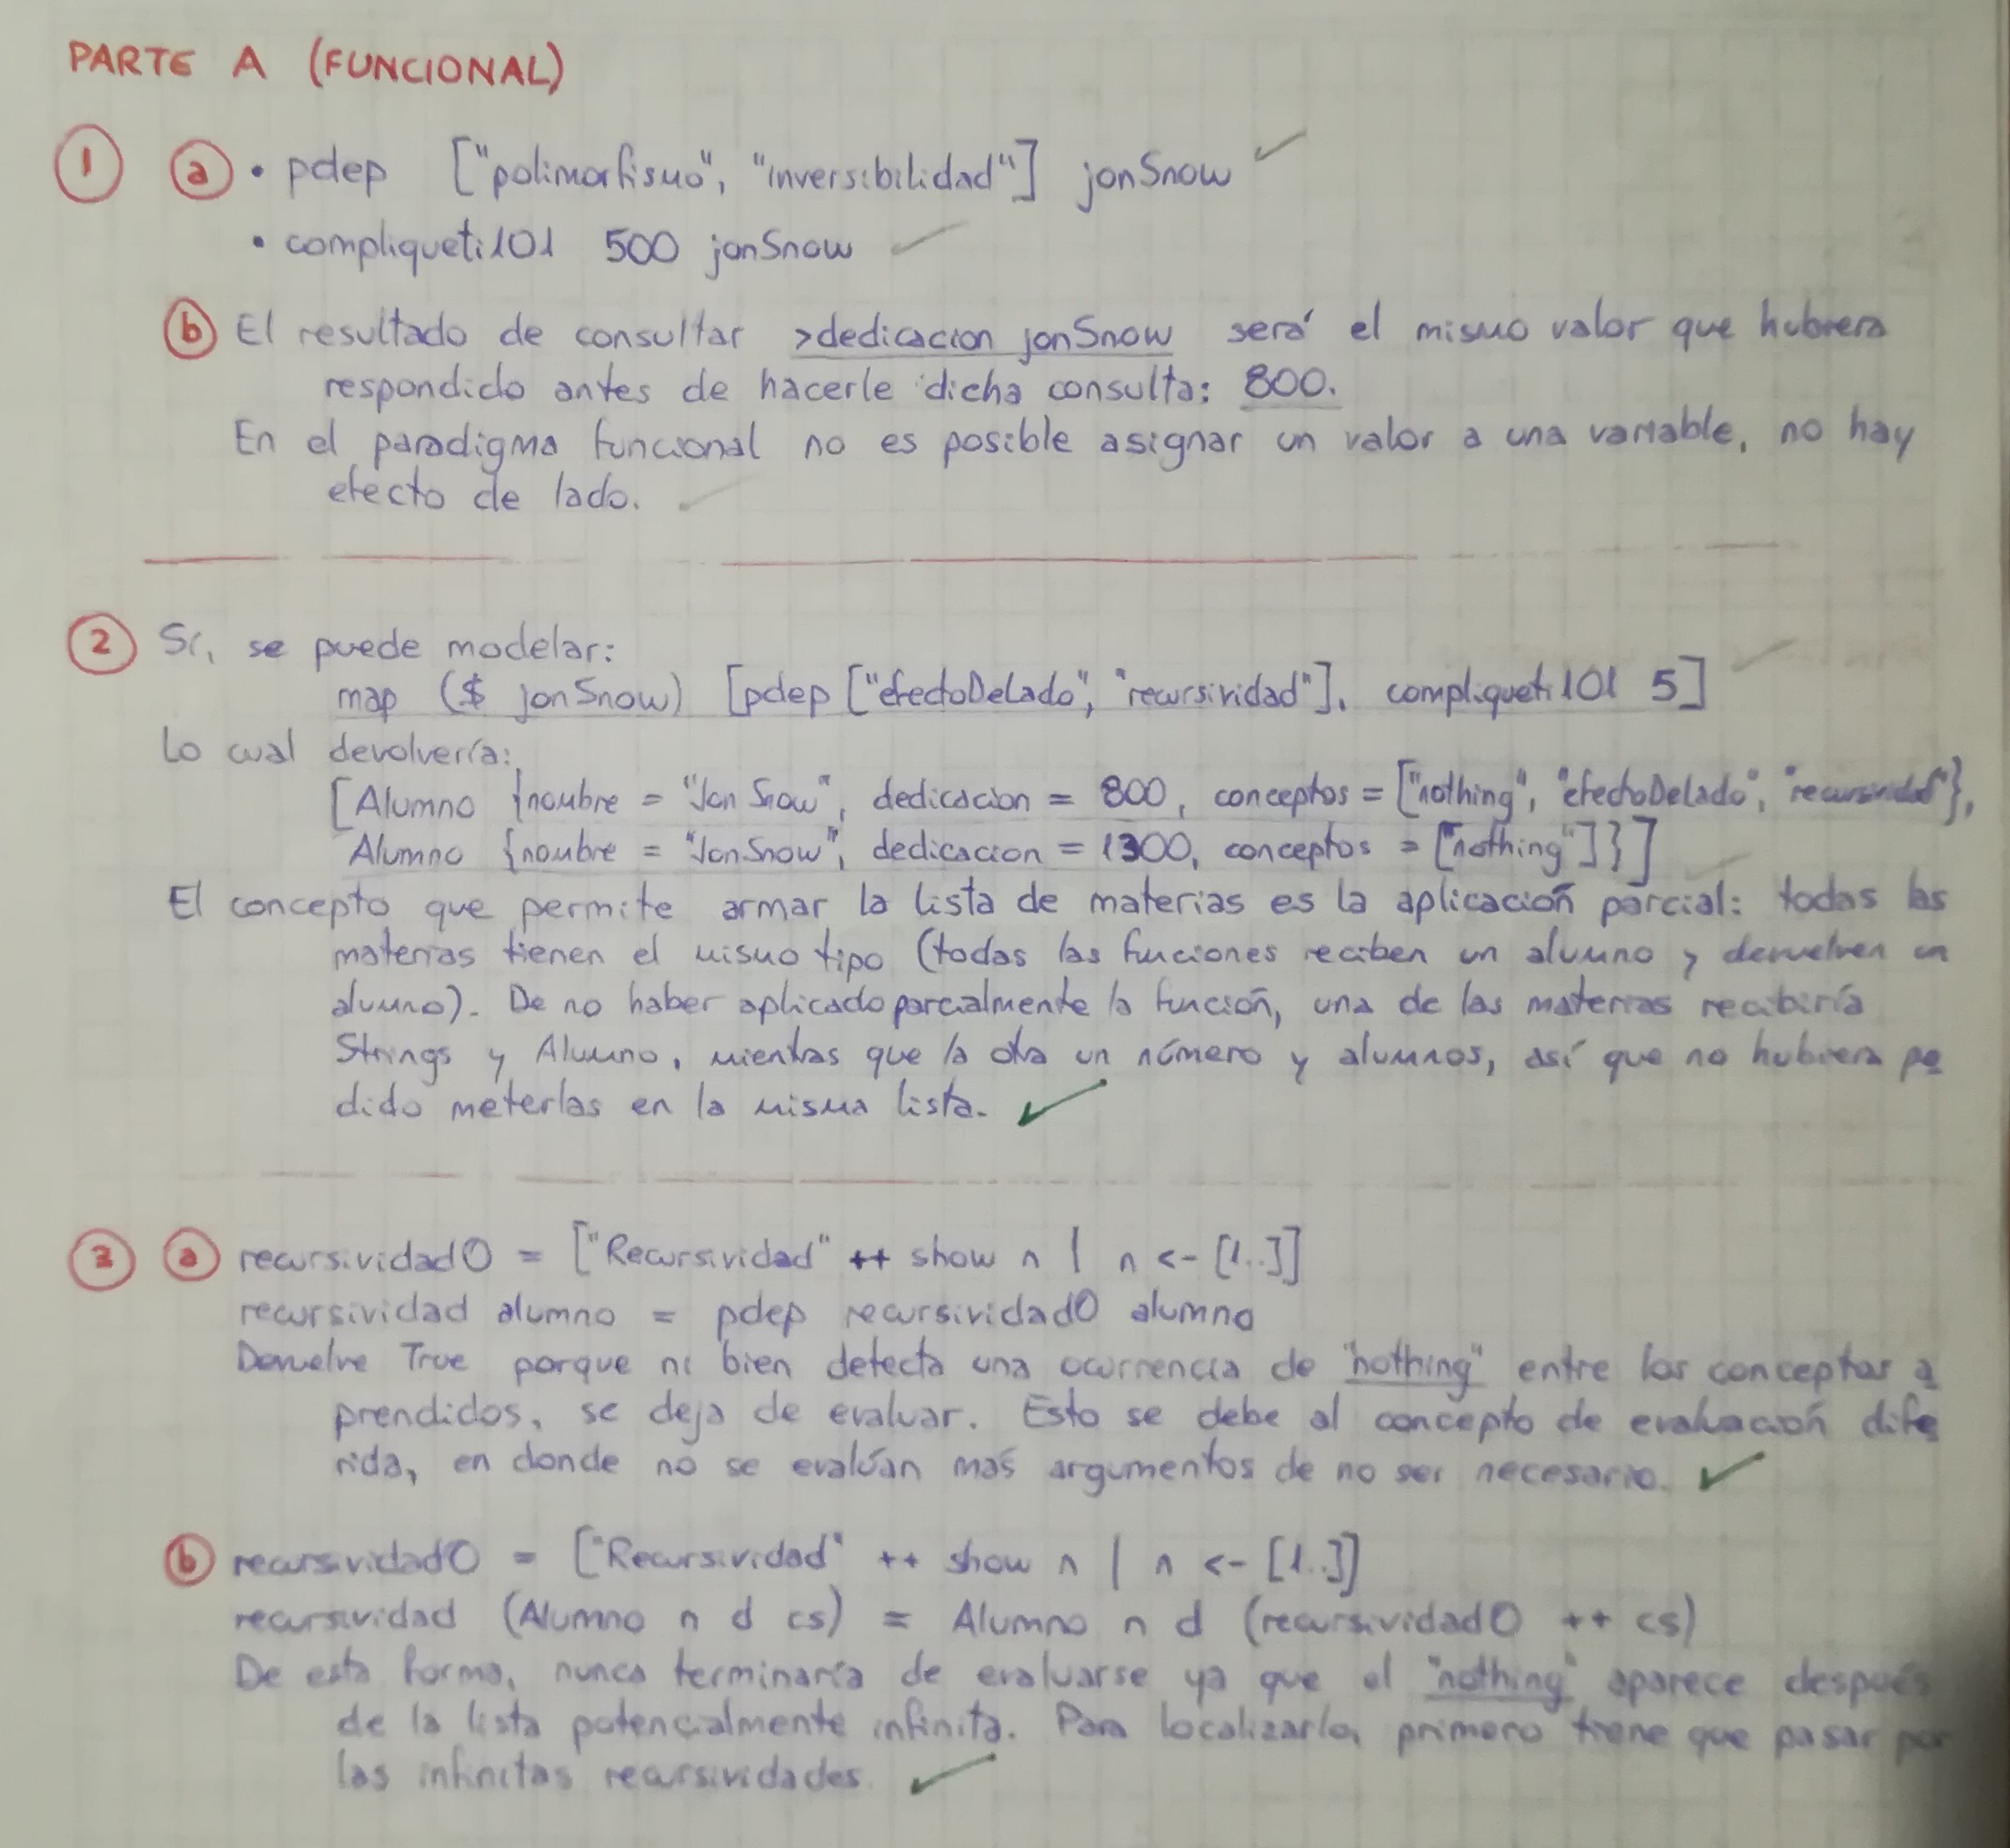 PARTE A (FUNCIONAL)
1 a • pdep ["polimorfismo", "inversibilidad"] jonSnow
• compliqueti101 500 jonSnow
b El resultado de consultar >dedicacion jonSnow será el mismo valor que hubiera
respondido antes de hacerle dicha consulta: 800.
En el paradigma funcional no es posible asignar un valor a una variable, no hay
efecto de lado.
2 Sí, se puede modelar:
map ($ jonSnow) [pdep ["efectoDeLado", "recursividad"], compliqueti101 5]
Lo cual devolvería:
[Alumno {nombre = "Jon Snow", dedicacion = 800, conceptos = ["nothing", "efectoDeLado", "recursividad"},
Alumno {nombre = "JonSnow", dedicacion = 1300, conceptos = ["nothing"]}]
El concepto que permite armar la lista de materias es la aplicación parcial: todas las
materias tienen el mismo tipo (todas las funciones reciben un alumno y devuelven un
alumno). De no haber aplicado parcialmente la función, una de las materias recibiría
Strings y Alumno, mientras que la otra un número y alumnos, así que no hubiera po
dido meterlas en la misma lista.
3 a recursividad0 = ["Recursividad" ++ show n | n <- [1..]]
recursividad alumno = pdep recursividad0 alumno
Devuelve True porque ni bien detecta una ocurrencia de "nothing" entre los conceptos a
prendidos, se deja de evaluar. Esto se debe al concepto de evaluación dife
rida, en donde no se evalúan más argumentos de no ser necesario.
b recursividad0 = ["Recursividad" ++ show n | n <- [1..]]
recursividad (Alumno n d cs) = Alumno n d (recursividad0 ++ cs)
De esta forma, nunca terminaría de evaluarse ya que el "nothing" aparece después
de la lista potencialmente infinita. Para localizarlo, primero tiene que pasar por
las infinitas recursividades.